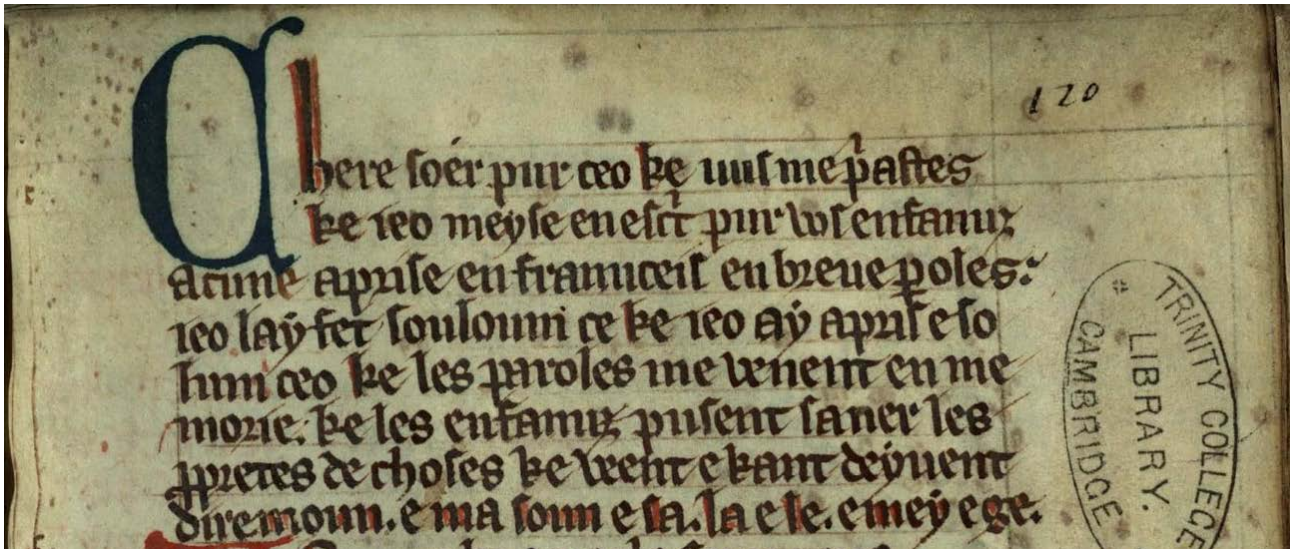 120
Chere soer pur ceo ke uus me p̃astes
ke ieo meyse en escͥt pur vos enfaunz
acune aprise en fraunceis en breue ꝑoles.
ieo lay fet soulounc ce ke ieo ay apris e so
lum ceo ke les paroles me venent en me
morie. ke les enfaunz pusent sauer les
ꝓpretes de choses ke veent e kant deyuent
dire moun. e ma soun e sa. la e le. e mey e ge.
TRINITY COLLEGE
LIBRARY.
CAMBRIDGE